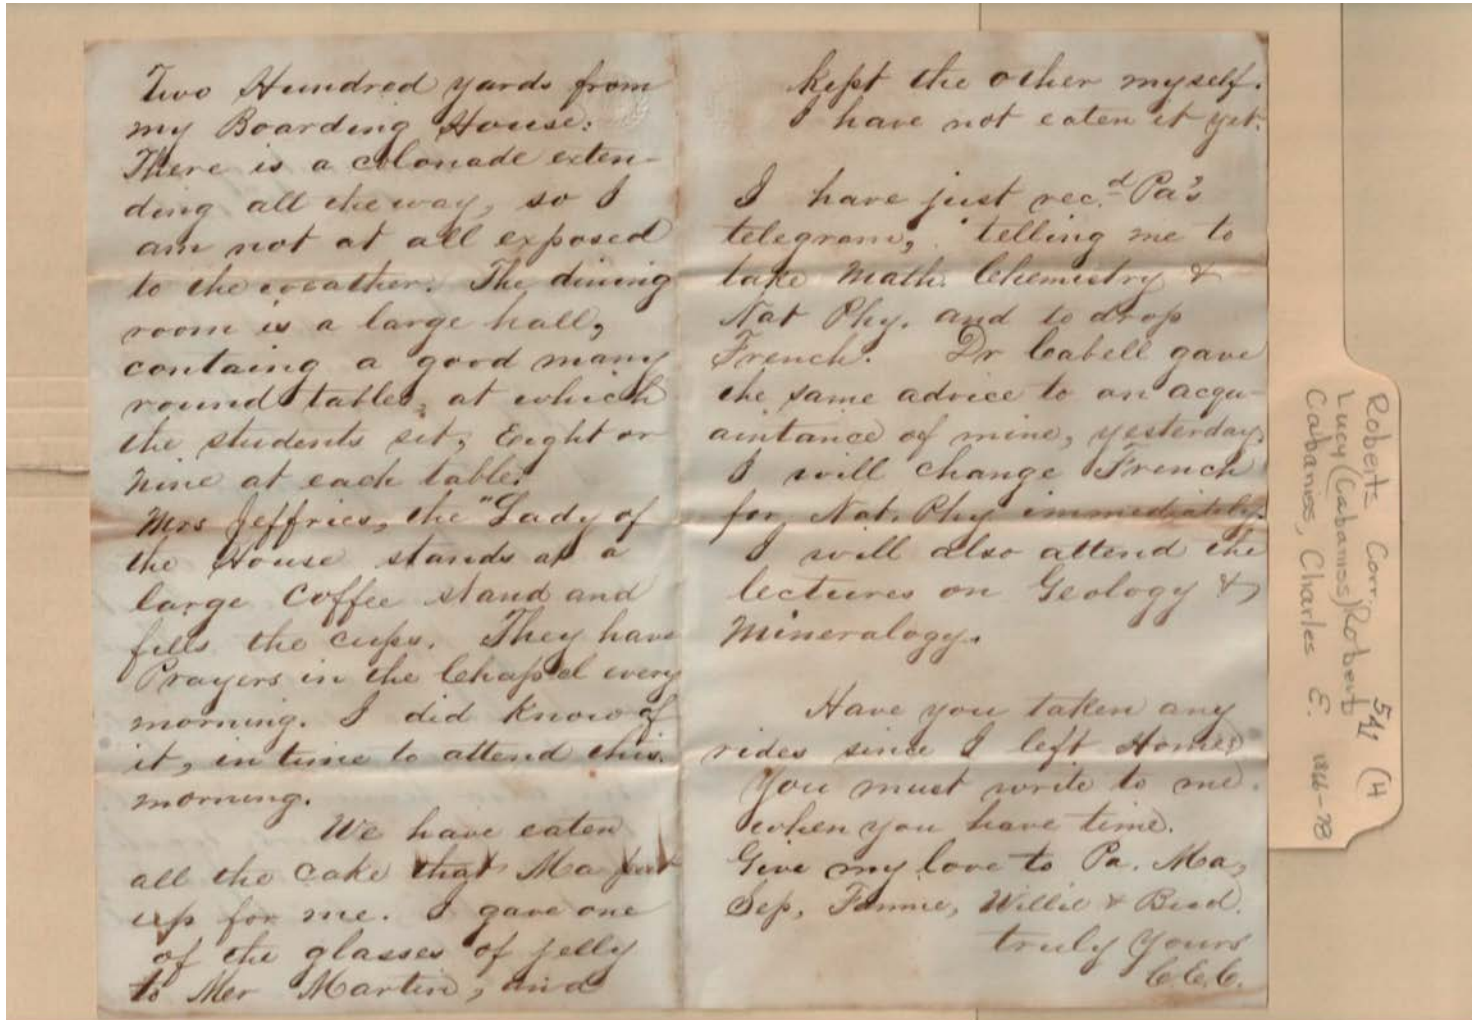 Two Hundred yards from
my Boarding House.
There is a colonade exten-
ding all the way, so I
am not at all exposed
to the weather. The dining
room is a large hall,
containg a good many
round tables, at which
the students sit, Eight or
Nine at each table.
Mrs Jeffries, the "Lady of
the House stands at a
large Coffee stand and
fills the cups. They have
Prayers in the Chapel every
morning. I did know of
it, in time to attend this
morning.
We have eaten
all the cake that Ma put
up for me. I gave one
of the glasses of jelly
to Mer Martin, and
kept the other myself.
I have not eaten it yet.
I have just rec.d Pa's
telegram, telling me to
take Math. Chemistry &
Nat Phy. and to drop
French. Dr Cabell gave
the same advice to an acqu-
aintance of mine, yesterday.
I will change French
for Nat. Phy immediately.
I will also attend the
lectures on Geology &
Mineralogy.
Have you taken any
rides since I left Home?
You must write to me
when you have time.
Give my love to Pa. Ma,
Sep, Fannie, Willie & Bud.
truly Yours
C.E.C.
Roberts Corr. 541 (4
Lucy (Cabaniss) Robert
Cabaniss, Charles E. 1866-78